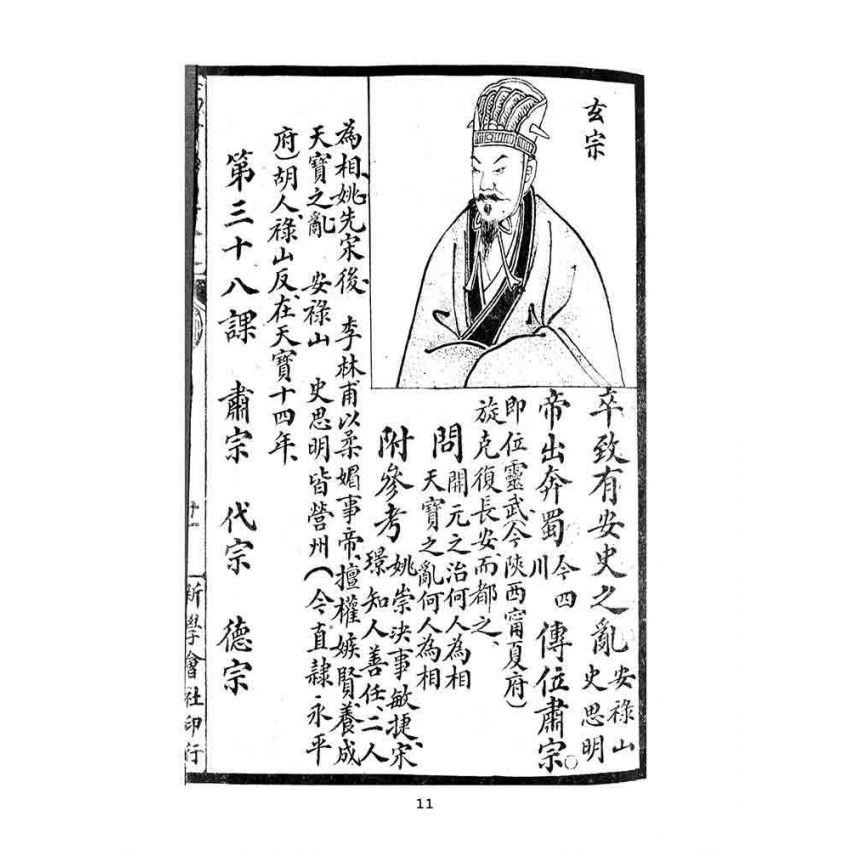 玄宗
卒致有安史之亂 安祿山
史思明
帝出奔蜀 今四
川 傳位肅宗。
即位靈武今陝西甯夏府）
旋克復長安而都之、
問 開元之治何人為相
天寶之亂何人為相
附參考 姚崇決事敏捷、宋
璟知人善任二人
為相、姚先宋後、李林甫以柔媚事帝、擅權嫉賢、養成
天寶之亂 安祿山 史思明皆營州（今直隸永平
府）胡人、祿山反、在天寶十四年、
第三十八課 肅宗 代宗 德宗
十一
新學會社印行
11